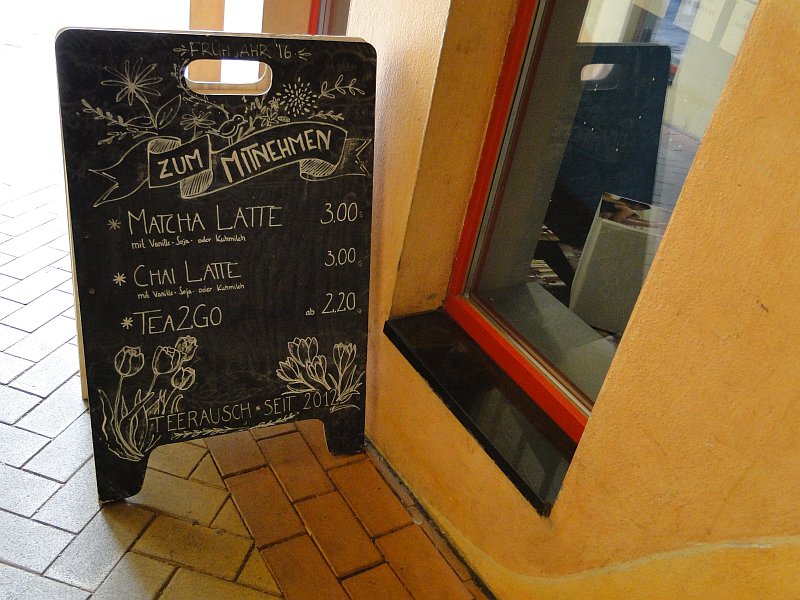 FRÜHJAHR '16
ZUM MITNEHMEN
MATCHA LATTE 3,00
mit Vanille-Soja- oder Kuhmilch
CHAI LATTE 3,00
mit Vanille-Soja- oder Kuhmilch
TEA2GO ab 2,20
TEERAUSCH * SEIT 2012